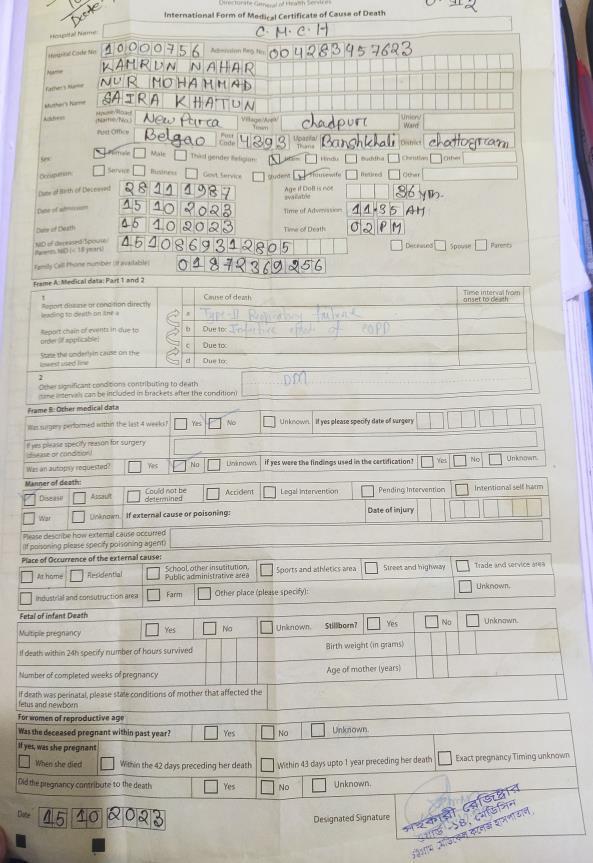 Directorate General of Health Services
International Form of Medical Certificate of Cause of Death
Hospital Name: C.M.C.H
Hospital Code No 10000756 Admission Reg. No: 004283957623
Name KAMRUN NAHAR
Father's Name NUR MOHAMMAD
Mother's Name SAIRA KHATUN
Address House/Road (Name/No.) New Parca Village/Area/Town chadpure Union/Ward
Post Office Belgao Post Code 4393 Upazila/Thana Banshkhali District chattogram
Sex: Female Male Third gender Religion: Islam Hindu Buddha Christian Other
Occupation: Service Business Govt. Service Student Housewife Retired Other
Date of Birth of Deceased 28111987 Age if DoB is not available 36 ym.
Date of admission 15102023 Time of Admission 11.35 AM
Date of Death 15102023 Time of Death 02 PM
NID of deceased/Spouse/Parents NID (< 18 years) Deceased Spouse Parents
Family Cell Phone number (if available) 01872369256
Frame A: Medical data: Part 1 and 2
1 Cause of death Time interval from onset to death
Report disease or condition directly leading to death on line a a Type-II Respiratory failure
Report chain of events in due to order (if applicable) b Due to: Infective of COPD
c Due to:
State the underlyin cause on the lowest used line d Due to:
2 DM
Other significant conditions contributing to death (time intervals can be included in brackets after the condition)
Frame B: Other medical data
Was surgery performed within the last 4 weeks? Yes No Unknown If yes please specify date of surgery
If yes please specify reason for surgery (disease or condition)
Was an autopsy requested? Yes No Unknown If yes were the findings used in the certification? Yes No Unknown.
Manner of death:
Disease Assault Could not be determined Accident Legal Intervention Pending Intervention Intentional self harm
War Unknown. If external cause or poisoning: Date of injury
Please describe how external cause occurred (If poisoning please specify poisoning agent)
Place of Occurrence of the external cause:
At home Residential School, other insutitution, Public administrative area Sports and athletics area Street and highway Trade and service area
Industrial and consutruction area Farm Other place (please specify): Unknown.
Fetal of infant Death
Multiple pregnancy Yes No Unknown. Stillborn? Yes No Unknown.
If death within 24h specify number of hours survived Birth weight (in grams)
Number of completed weeks of pregnancy Age of mother (years)
If death was perinatal, please state conditions of mother that affected the fetus and newborn
For women of reproductive age
Was the deceased pregnant within past year? Yes No Unknown.
If yes, was she pregnant
When she died Within the 42 days preceding her death Within 43 days upto 1 year preceding her death Exact pregnancy Timing unknown
Did the pregnancy contribute to the death Yes No Unknown.
Date 15102023 Designated Signature
সহকারী রেজিষ্টার
ওয়ার্ড -১৪, মেডিসিন
চট্টগ্রাম মেডিকেল কলেজ হাসপাতাল,